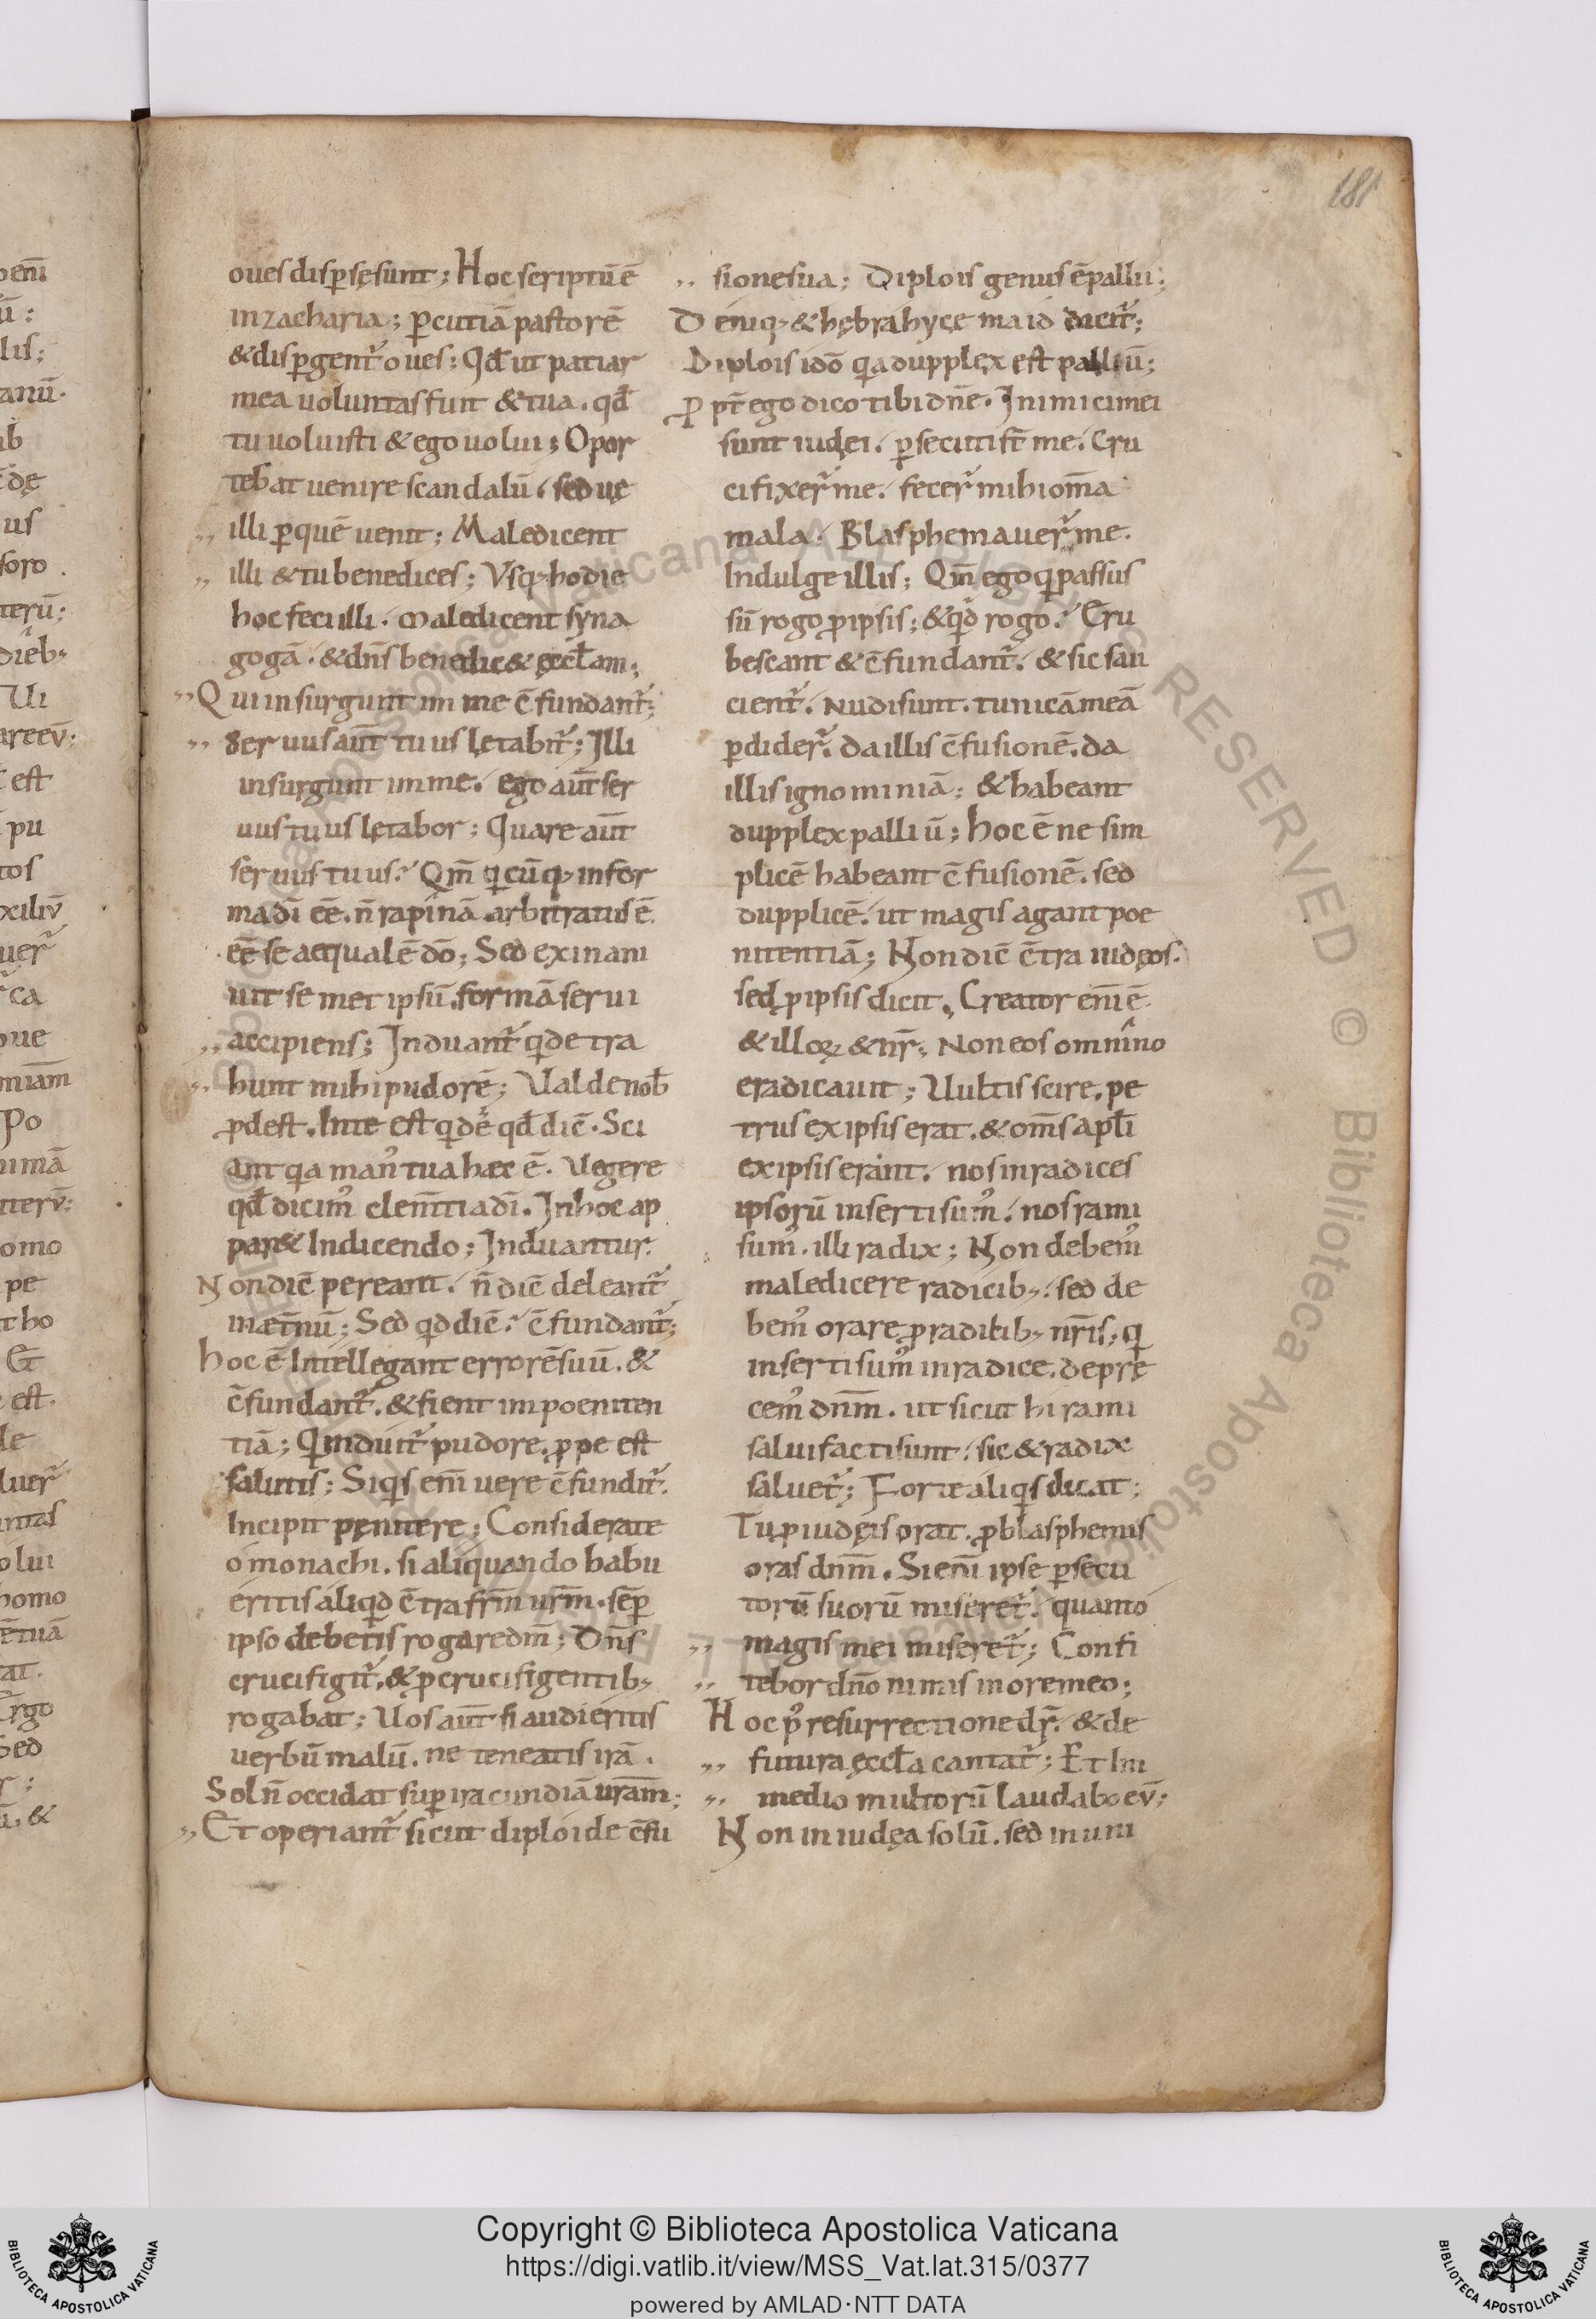 181
oues disp̱sę sunt; Hoc scriptū ē
in zacharia; p̱cutiā pastorē
& disp̱gent᷑ oues; Qđ ut patiar
mea uoluntas fuit & tua. qđ
tu uoluisti & ego uolui; Opor
tebat uenire scandalū. sed uę
,, illi p̱ quē uenit; Maledicent
,, illi & tu benedices; Vsq; hodie
hoc feci illi. maledicent syna
gogā. & dn̄s benedic& ęccl̄am;
,, Qui insurgunt in me c̄fundant᷑;
,, Seruus aūt tuus lętabit᷑; Illi
insurgunt in me. ego aūt ser
uus tuus lętabor; Quare aūt
seruus tuus? Qm̄ qi cūq; in for
ma dī eē. n̄ rapinā arbitratus ē
eē se aequalē dō; Sed exinani
uit semet ipsū. formā serui
,, accipiens; Induant᷑ qi detra
,, hunt mihi pudorē; Ualde nob̄
p̄dest. Inte est qdē qđ dic̄. Sci
ant qa man᷒ tua haec ē. Uegere
qđ dicim᷒ clem̄tia dī. In hoc ap
par& Indicendo; Induantur.
Non dic̄ pereant. n̄ dic̄ deleant᷑
in aet̄nū; Sed qd dic̄? c̄fundant᷑;
hoc ē Intellegant errorē suū. &
c̄fundant᷑. & fient in poeniten
tiā; Qi induit᷑ pudore. ꝓpe est
salutis; Siqis em̄ uere c̄fundit᷑.
Incipit pęnitere; Considerate
o monachi. si aliquando habu
eritis aliqid c̄tra frm̄ urm̄. sēp̱
ipso debetis rogare dm̄; Dn̄s
crucifigit᷑. & ꝓ crucifigentib;
rogabat; Uos aūt si audieritis
uerbū malū. ne teneatis irā.
Sol n̄ occidat sup̱ iracundiā urām;
,, Et operiant᷑ sicut diploide c̄fu
,, sione sua; Diplois genus ē pallii;
Deniq; & hębrahyce maid dicit᷑;
Diplois idō qa dupplex est palliū;
ꝓpt̄ ego dico tibi dn̄e. Inimici mei
sunt iudei. p̱secuti st̄ me. Cru
cifixer᷑ me. fecer᷑ mihi om̄a
mala. Blasphemauer᷑ me.
Indulge illis; Qm̄ ego qi passus
sū rogo ꝓ ipsis; & qid rogo? Eru
bescant & c̄fundant᷑. & sic sau
cient᷑. Nudi sunt. tunicā meā
p̱dider᷑. da illis c̄fusionē. da
illis ignominiā; & habeant
dupplex palliū; hoc ē ne sim
plicē habeant c̄fusionē. sed
dupplicē. ut magis agant poe
nitentiā; Non dic̄ c̄tra iudęos.
sed ꝓ ipsis dicit. Creator em̄ ē
& illoꝝ & nr̄; Non eos omnino
eradicauit; Uultis scire. pe
trus ex ipsis erat. & om̄s apl̄i
ex ipsis erant. nos in radices
ipsorū inserti sum᷒. nos rami
sum᷒. illi radix; Non debem᷒
maledicere radicib;. sed de
bem᷒ orare ꝓ radicib; nr̄is; qi
inserti sum᷒ in radice. depre
cem᷒ dnm̄. ut sicut hi rami
salui facti sunt. sic & radix
saluet᷑; Forte aliqis dicat;
Tu ꝓ iudęis orat. ꝓ blasphemis
oras dnm̄. Si enī ipse p̱secu
torū suorū miseret᷑. quanto
,, magis mei miseret᷑; Confi
,, tebor dn̄o nimis in ore meo;
Hoc p᷒ resurrectione dr̄. & de
,, futura ęccl̄a cantat᷑; Et In
,, medio multorū laudabo eū;
Non in iudęa solū. sed in uni
Copyright © Biblioteca Apostolica Vaticana
https://digi.vatlib.it/view/MSS_Vat.lat.315/0377
powered by AMLAD·NTT DATA